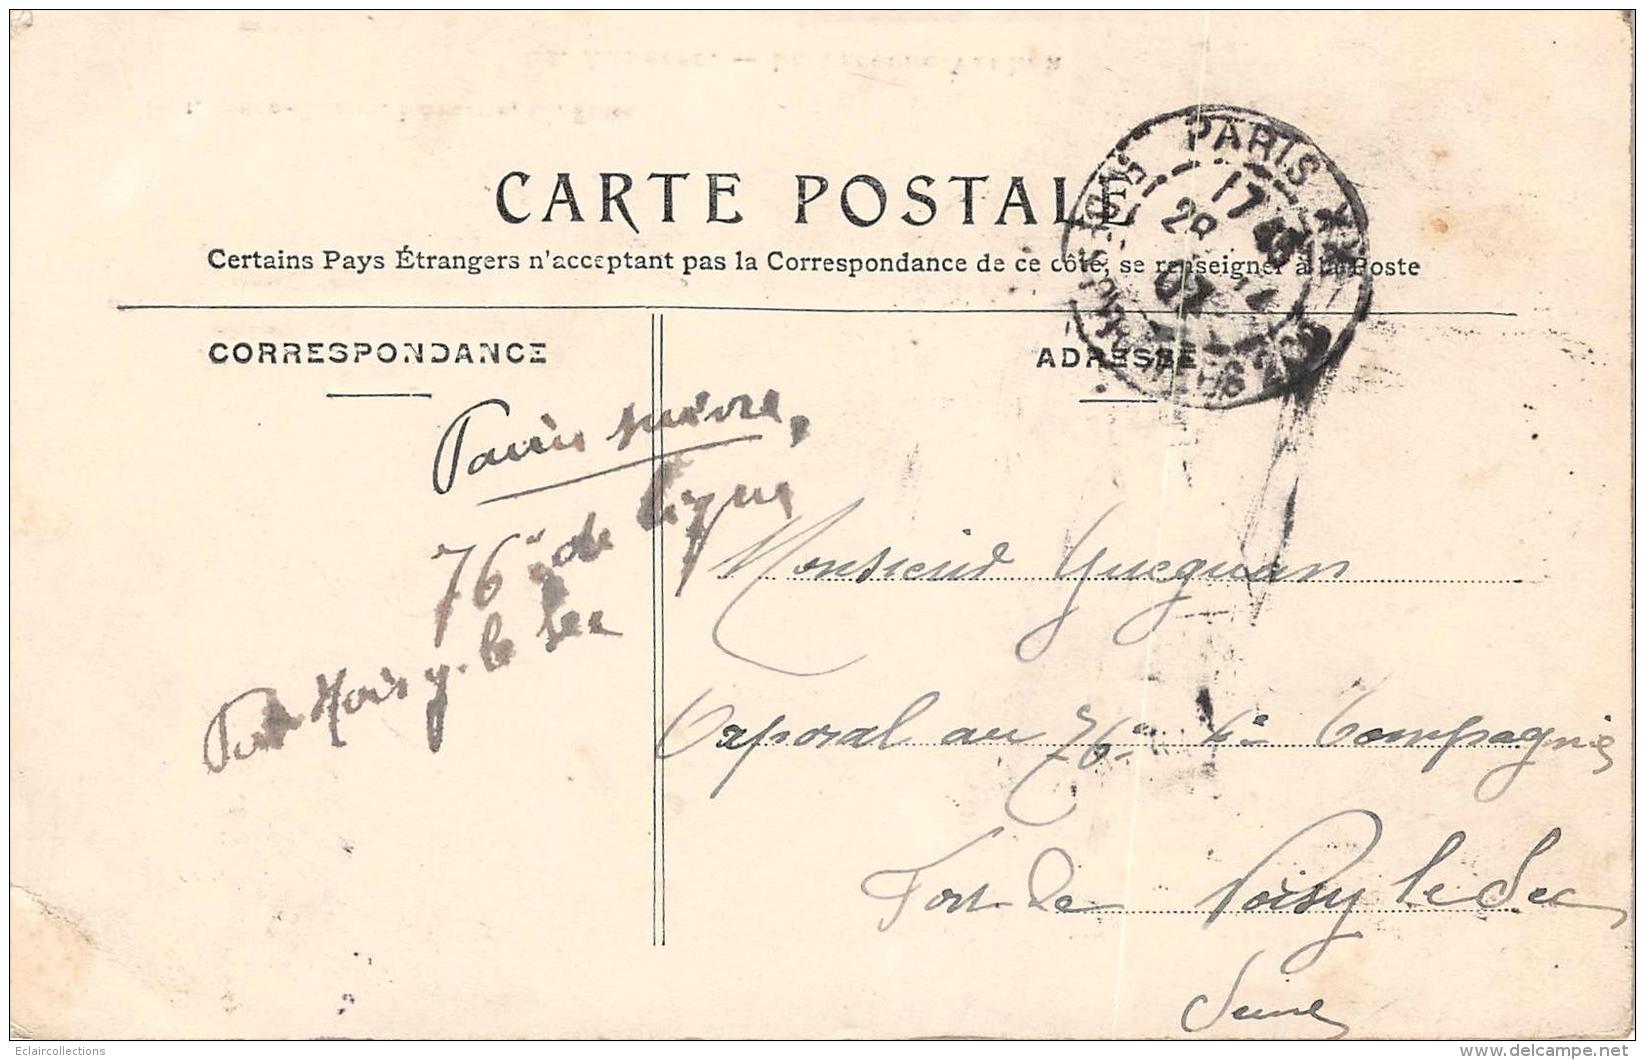 CARTE POSTALE
Certains Pays Étrangers n'acceptant pas la Correspondance de ce côté, se renseigner à la Poste
CORRESPONDANCE
ADRESSE
PARIS XX
17 45
28
07
suivre,
76e de ligne
Fort Noisy-le Sec
Monsieur Guéguan
Caporal au 76e 4e Compagnie
Fort de Noisy le Sec
Seine
Eclaircollections
www.delcampe.net